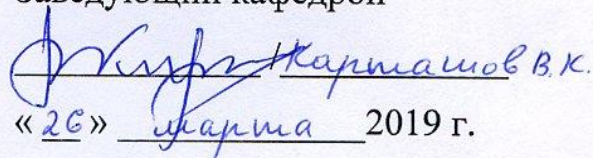 Заведующий кафедрой
/ Карташов В.К.
« 26 » марта 2019 г.